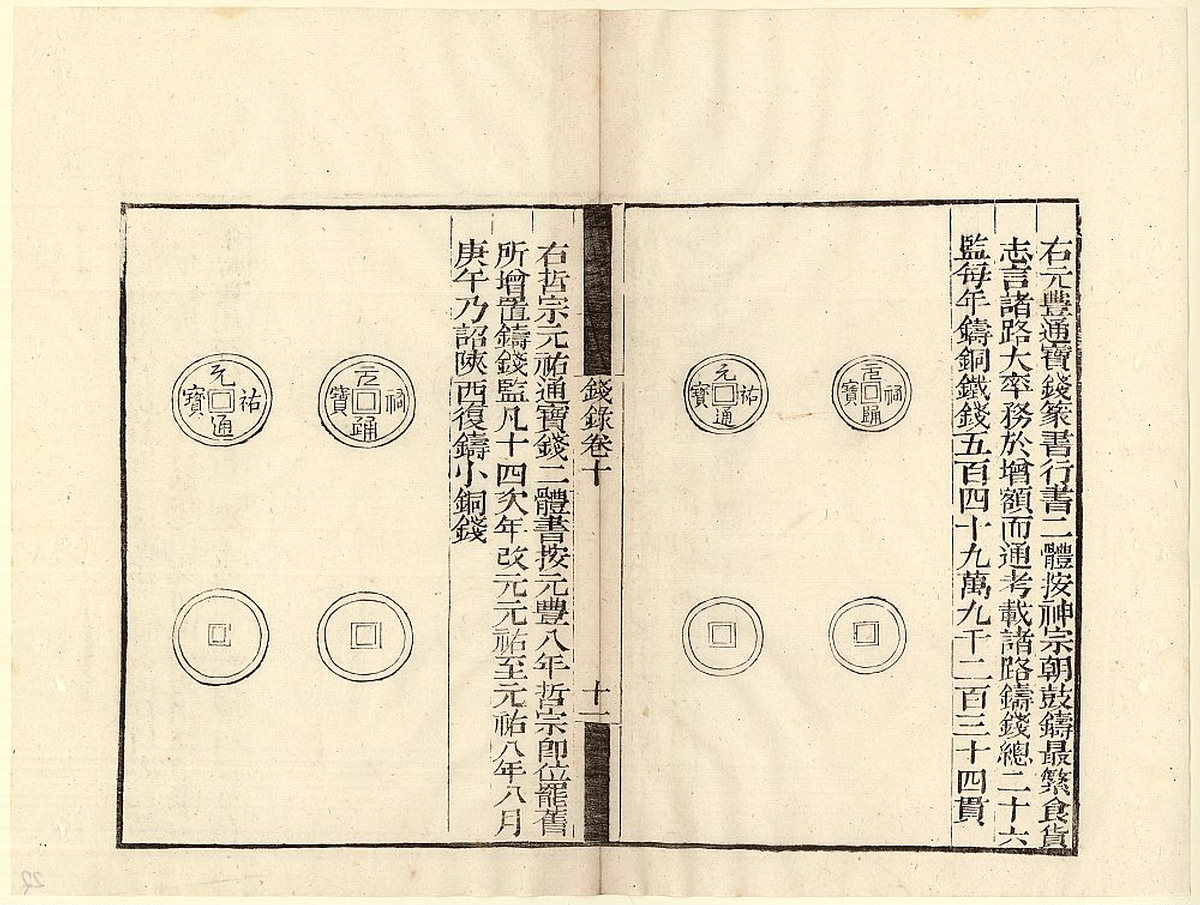 右元豐通寶錢篆書行書二體按神宗朝鼓鑄最繁食貨
志言諸路大率務於增額而通考載諸路鑄錢總二十六
監每年鑄銅鐵錢五百四十九萬九千二百三十四貫
元祐通寶
元祐通寶
錢錄卷十
十一
右哲宗元祐通寶錢二體書按元豐八年哲宗卽位罷舊
所增置鑄錢監凡十四次年改元元祐至元祐八年八月
庚午乃詔陝西復鑄小銅錢
元祐通寶
元祐通寶